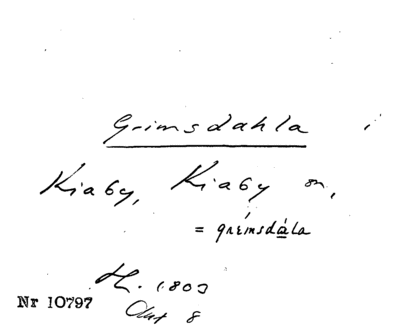 Grimsdahla i
Kiaby, Kiaby sn,
= grímsdàla
H. 1803
Akt 8
Nr 10797